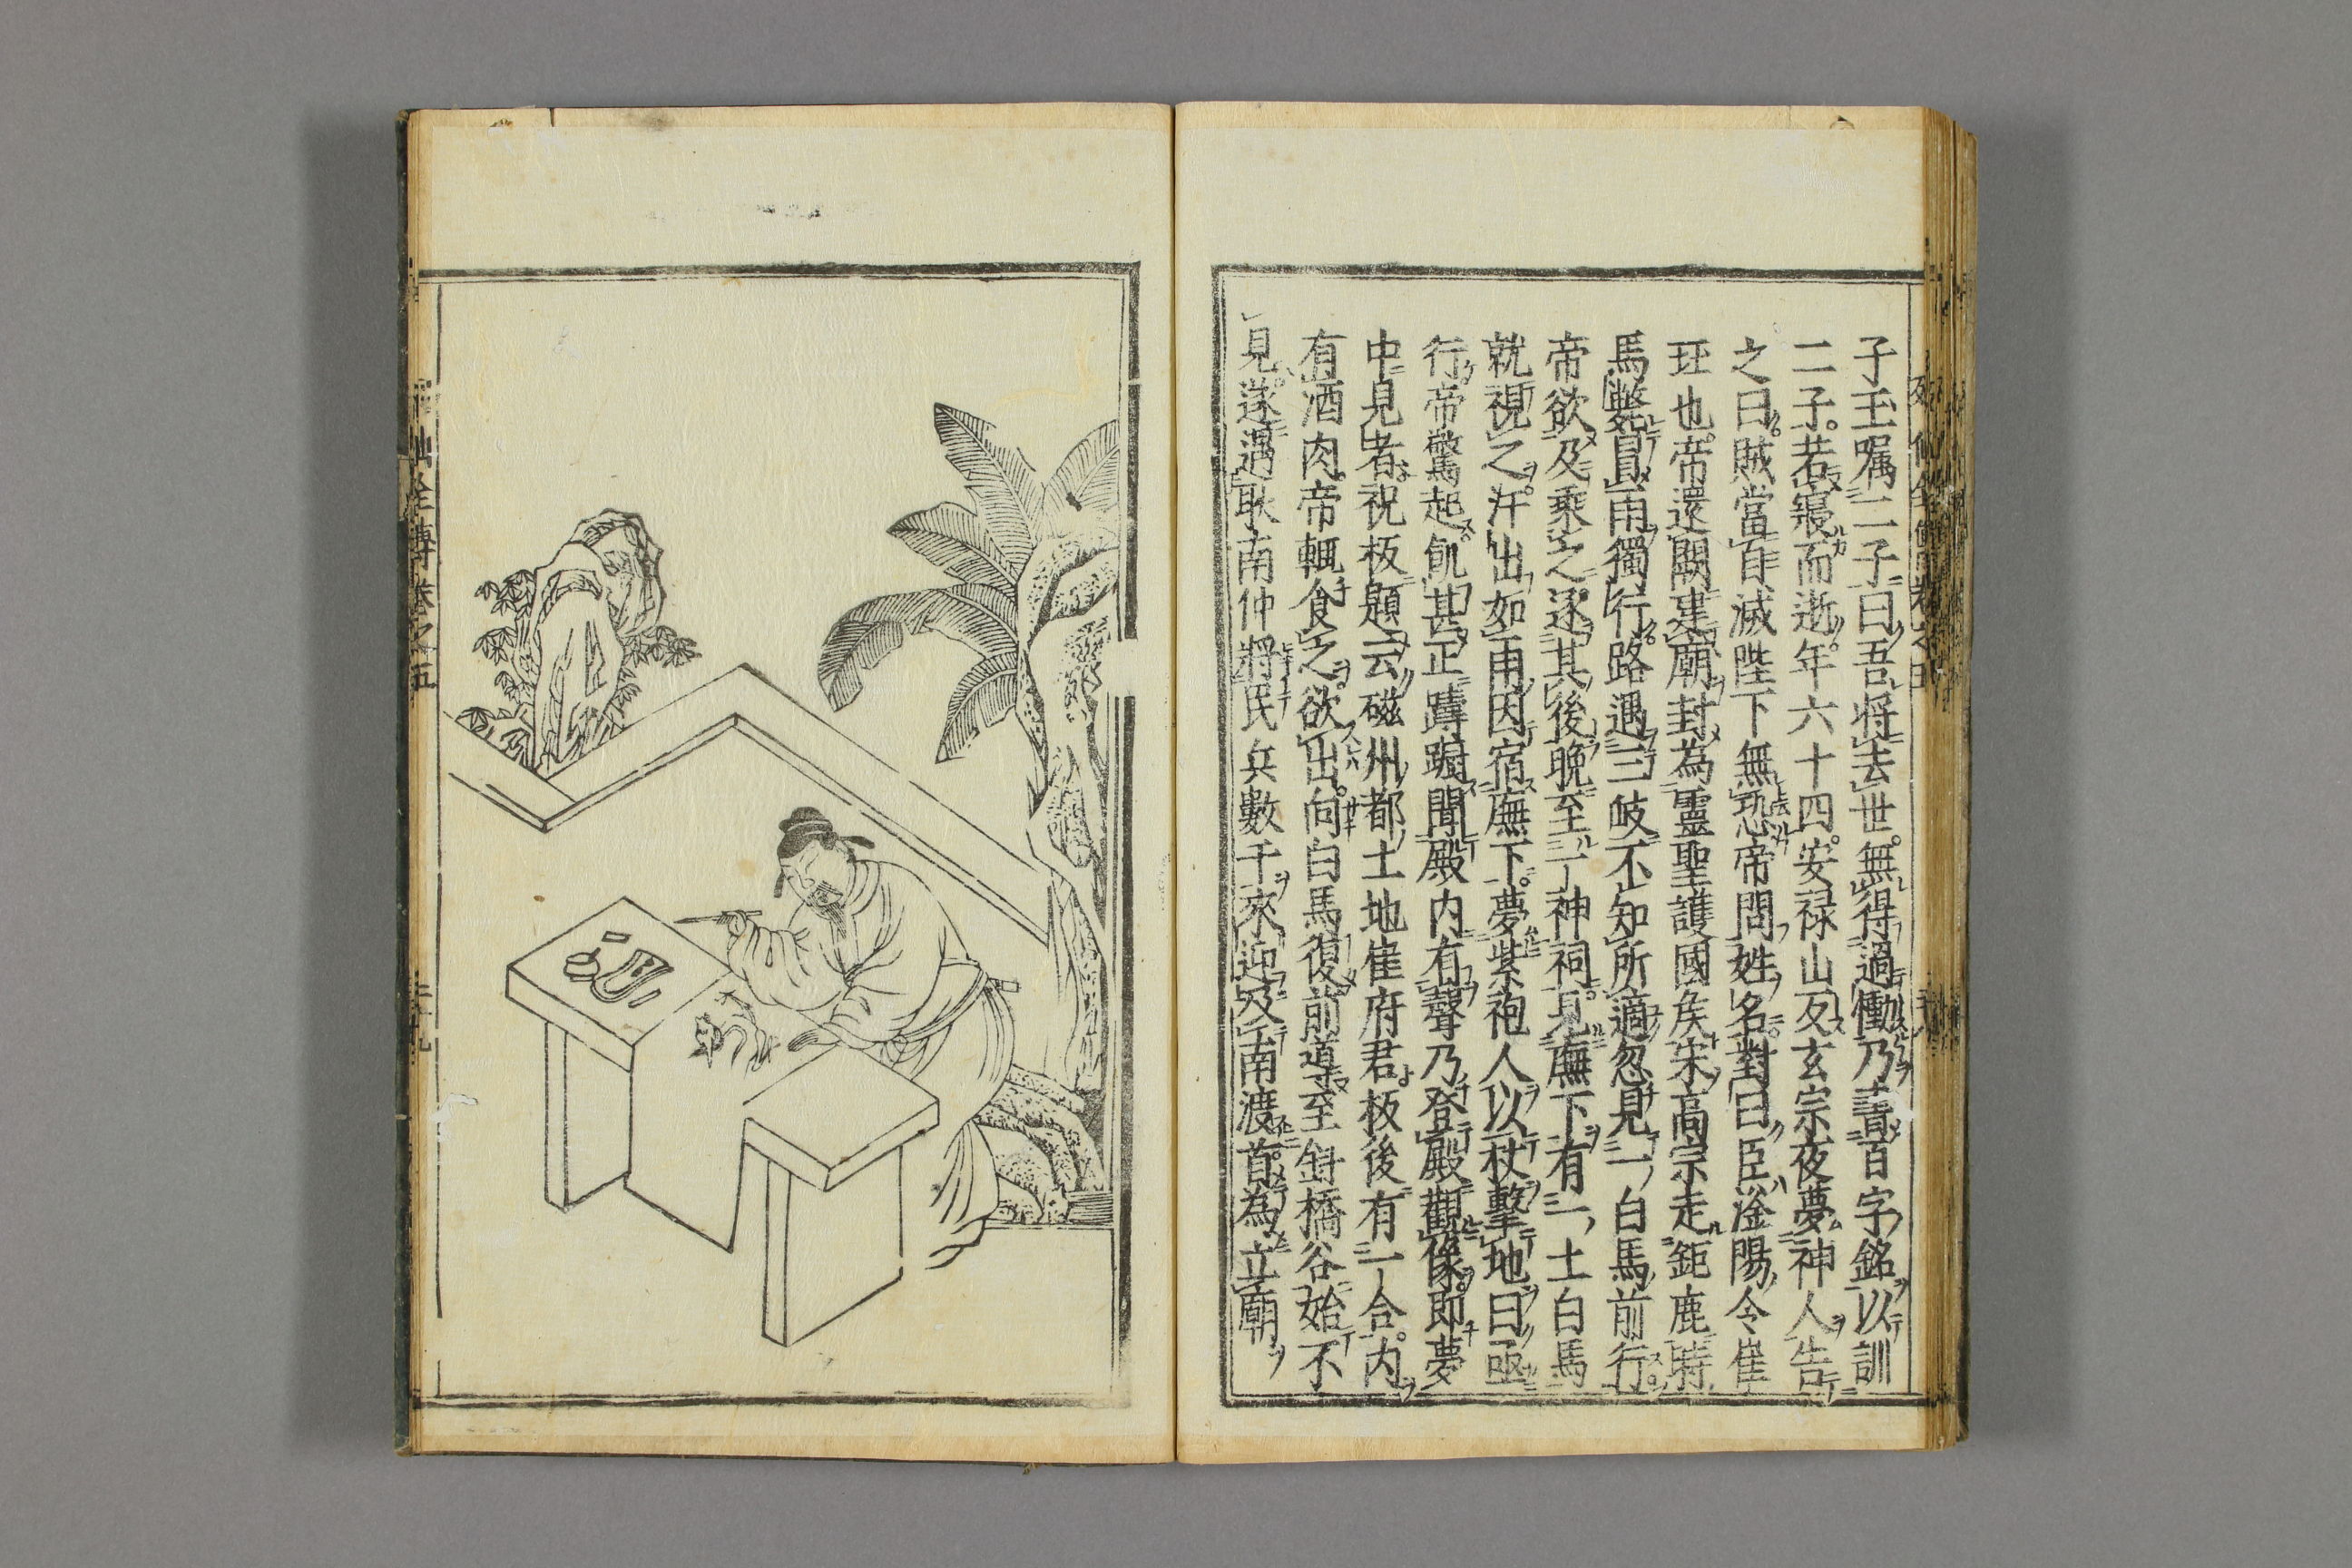 子玉嘱二子曰吾將去世。無得過慟乃書百字銘以訓
二子。若寢而逝。年六十四。安禄山反玄宗夜夢神人告
之曰。賊當自滅陛下無恐帝問姓名。對曰臣滏陽令崔
珏也。帝還闕建廟封為靈聖護國侯宋高宗走鉅鹿時
馬斃冒雨獨行。路遇三岐不知所適忽見一白馬前行。
帝欲及乘之。逐其後晚至一神祠。見廡下有一土白馬
就視之。汗出如雨因宿廡下。夢紫袍人以杖擊地曰亟
行帝驚起。飢甚正躊躇聞殿内有聲乃登殿觀像。即夢
中見者。祝板題云磁州都土地崔府君。板後有一合。内
有酒肉。帝輒食之。欲出。向白馬復前導至斜橋谷始不
見。遂遇耿南仲將民兵數千來迎及南渡。首為立廟
仙全傳卷之五